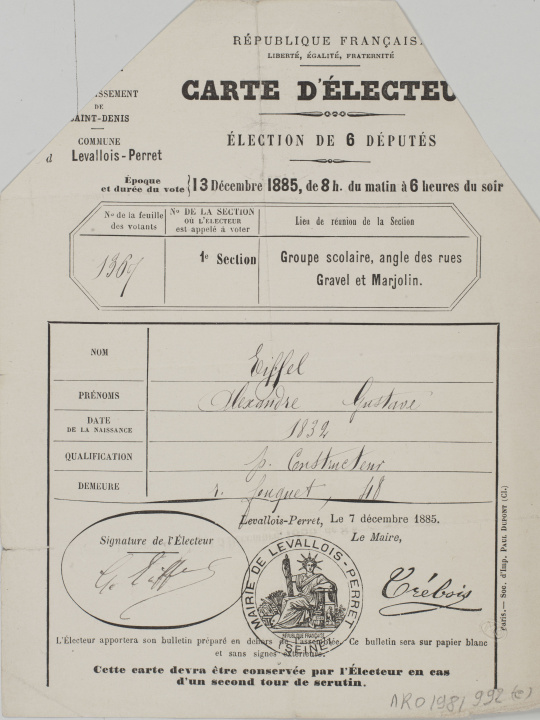 RÉPUBLIQUE FRANÇAIS
LIBERTÉ, ÉGALITÉ, FRATERNITÉ
CARTE D'ÉLECTEU
ÉLECTION DE 6 DÉPUTÉS
SSEMENT
DE
SAINT-DENIS
COMMUNE
d Levallois-Perret
Époque
et durée du vote
13 Décembre 1885, de 8 h. du matin à 6 heures du soir
No de la feuille
des votants
No DE LA SECTION
OU L'ÉLECTEUR
est appelé à voter
Lieu de réunion de la Section
1367
1e Section
Groupe scolaire, angle des rues
Gravel et Marjolin.
NOM Eiffel
PRÉNOMS Alexandre Gustave
DATE
DE LA NAISSANCE
1832
QUALIFICATION p. Constructeur
DEMEURE r. Fouquet, 48
Levallois-Perret, Le 7 décembre 1885.
Signature de l'Électeur
Le Maire,
G. Eiffel
Trébois
MAIRIE DE LEVALLOIS-PERRET
RÉPUBLIQUE FRANÇAISE
(SEINE)
L'Électeur apportera son bulletin préparé en dehors de l'assemblée. Ce bulletin sera sur papier blanc
et sans signes extérieurs.
Cette carte devra être conservée par l'Électeur en cas
d'un second tour de scrutin.
Paris.— Soc. d'Imp. PAUL DUPONT (Cl.)
ARO 1981 992 (c)